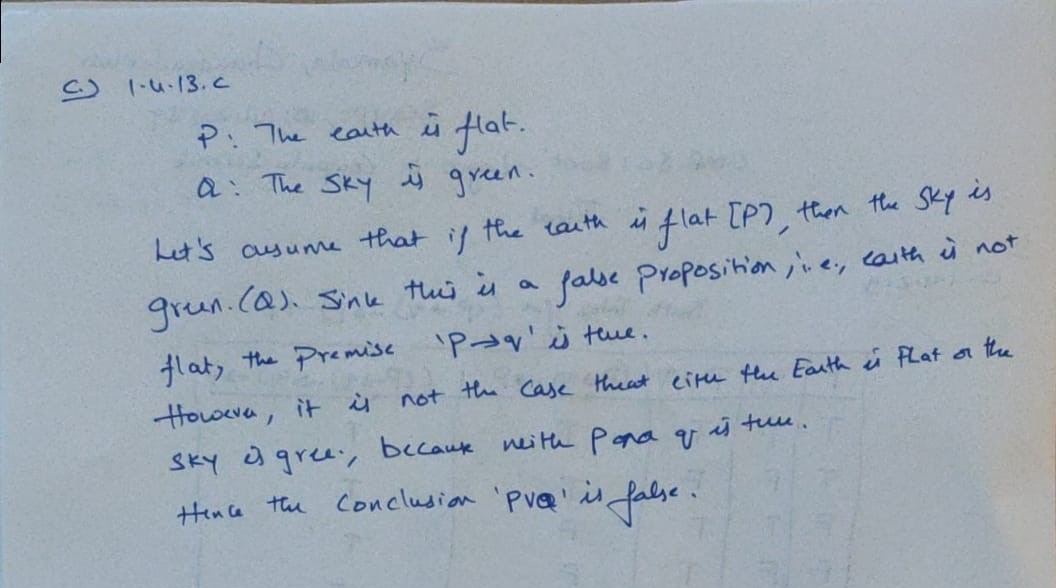 C.) 1.4.13.c
P: The earth is flat.
Q: The Sky is green.
Let's assume that if the earth is flat [P], then the Sky is
green. (Q). Sinle this is a false proposition, i.e., earth is not
flat, the Premise 'P→q' is true.
However, it is not the case that eithe the Earth is Flat or the
Sky is gree., because neith p and q is true.
Hence the Conclusion 'PVQ' is false.